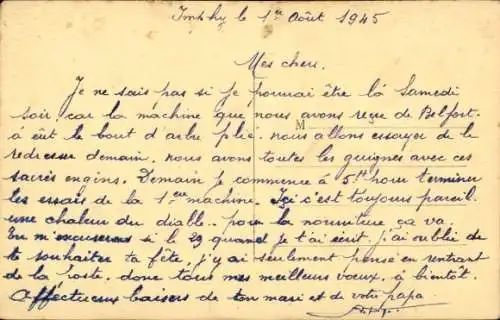 Imphy le 1er Août 1945
Mes chers.
Je ne sais pas si je pourrai être là Samedi
soir, car la machine que nous avons reçue de Belfort.
M
a eût le bout d'arbre plié. nous allons essayer de le
redresser demain. nous avons toutes les guignes avec ces
sacrés engins. Demain je commence à 5h pour terminer
les essais de la 1ère machine. Ici c'est toujours pareil.
une chaleur du diable.. pour la nourriture ça va.
Tu m'excuseras si le 29 quand je t'ai écrit. j'ai oublié de
te souhaiter ta fête, j'y ai seulement pensé en rentrant
de la Poste. donc tous mes meilleurs vœux. à bientôt.
Affectueux baisers de ton mari et de votre papa.